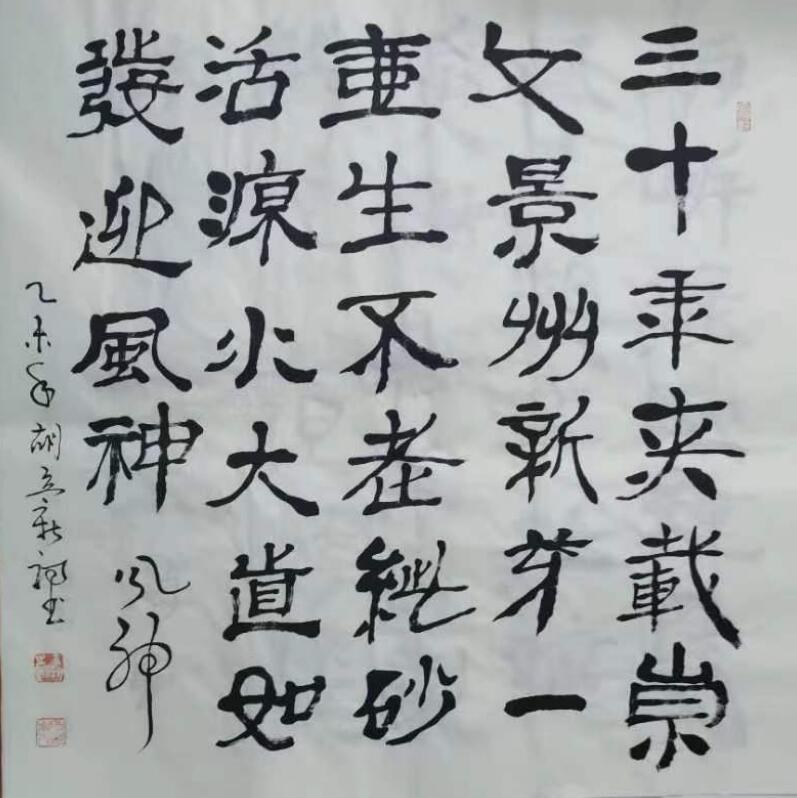 三十年来載崇
文景州新芽一
生不老砂
活源水大道如
發迎風神 风神
乙未年胡立新书